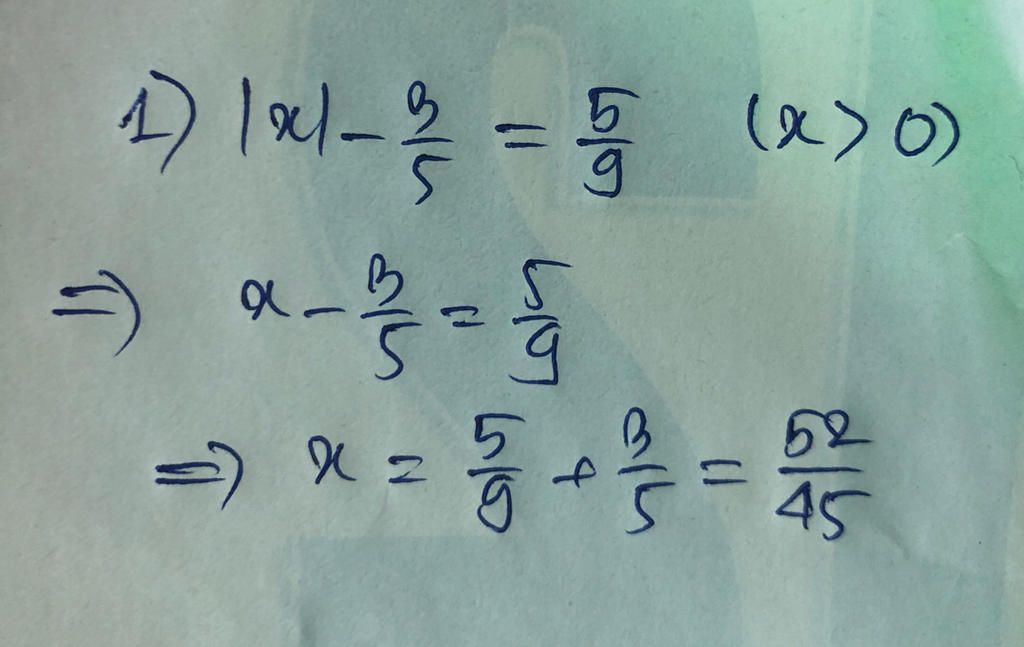 1) |x| - 3/5 = 5/9 (x > 0)
=> x - 3/5 = 5/9
=> x = 5/9 + 3/5 = 52/45